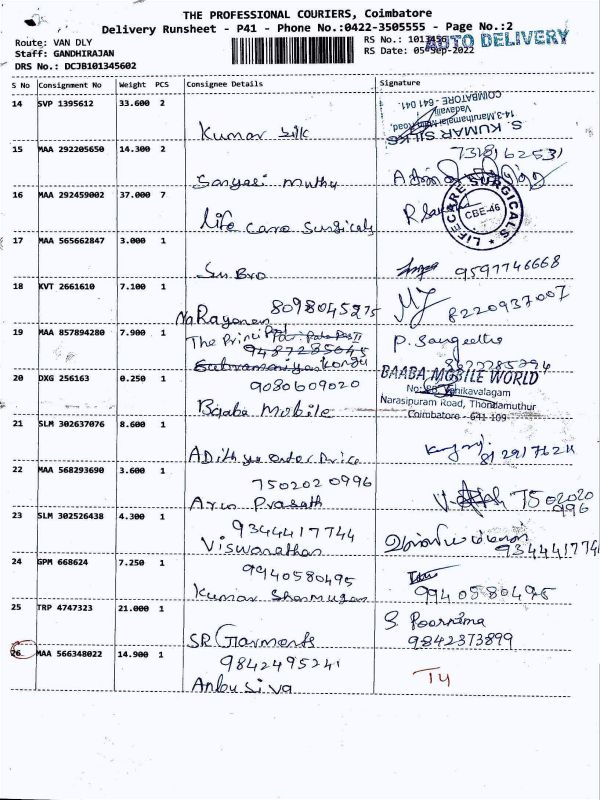 THE PROFESSIONAL COURIERS, Coimbatore
Delivery Runsheet - P41 - Phone No.:0422-3505555 - Page No.:2
Route: VAN DLY
Staff: GANDHIRAJAN
DRS No.: DCJB101345602
RS No.: 1013456
RS Date: 05-Sep-2022
AUTO DELIVERY
S No Consignment No Weight PCS Consignee Details Signature
14 SVP 1395612 33.600 2
Kumar Silk
S. KUMAR SILKS
14-3, Maruthamalai Main Road,
Vadavalli,
COIMBATORE - 641 041.
15 MAA 292205650 14.300 2
Sanyasi Muthu
7318162531
16 MAA 292459002 37.000 7
Life Care Surgicals
LIFECARE SURGICALS
CBE-46
17 MAA 565662847 3.000 1
Sri Bro
9597746668
18 KVT 2661610 7.100 1
8098045275
NaRayanan
8220937007
19 MAA 857894280 7.900 1
The Principal
9487285645
Subramaniyan Kongu
P. Sangeetha
20 DXG 256163 0.250 1
9080609020
Baaba Mobile
BAABA MOBILE WORLD
Narasipuram Road, Thondamuthur
Coimbatore - 641 109
21 SLM 302637076 8.600 1
ADithya Order Price
22 MAA 568293690 3.600 1
7502020996
Arun Prasath
7502020
996
23 SLM 302526438 4.300 1
9344417744
Viswanathan
24 GPM 668624 7.250 1
9940580495
Kumar Shanmugan
9940580495
25 TRP 4747323 21.000 1
SR Garments
S. Poornima
9842373899
26 MAA 566348022 14.900 1
9842495241
Anbu Siva